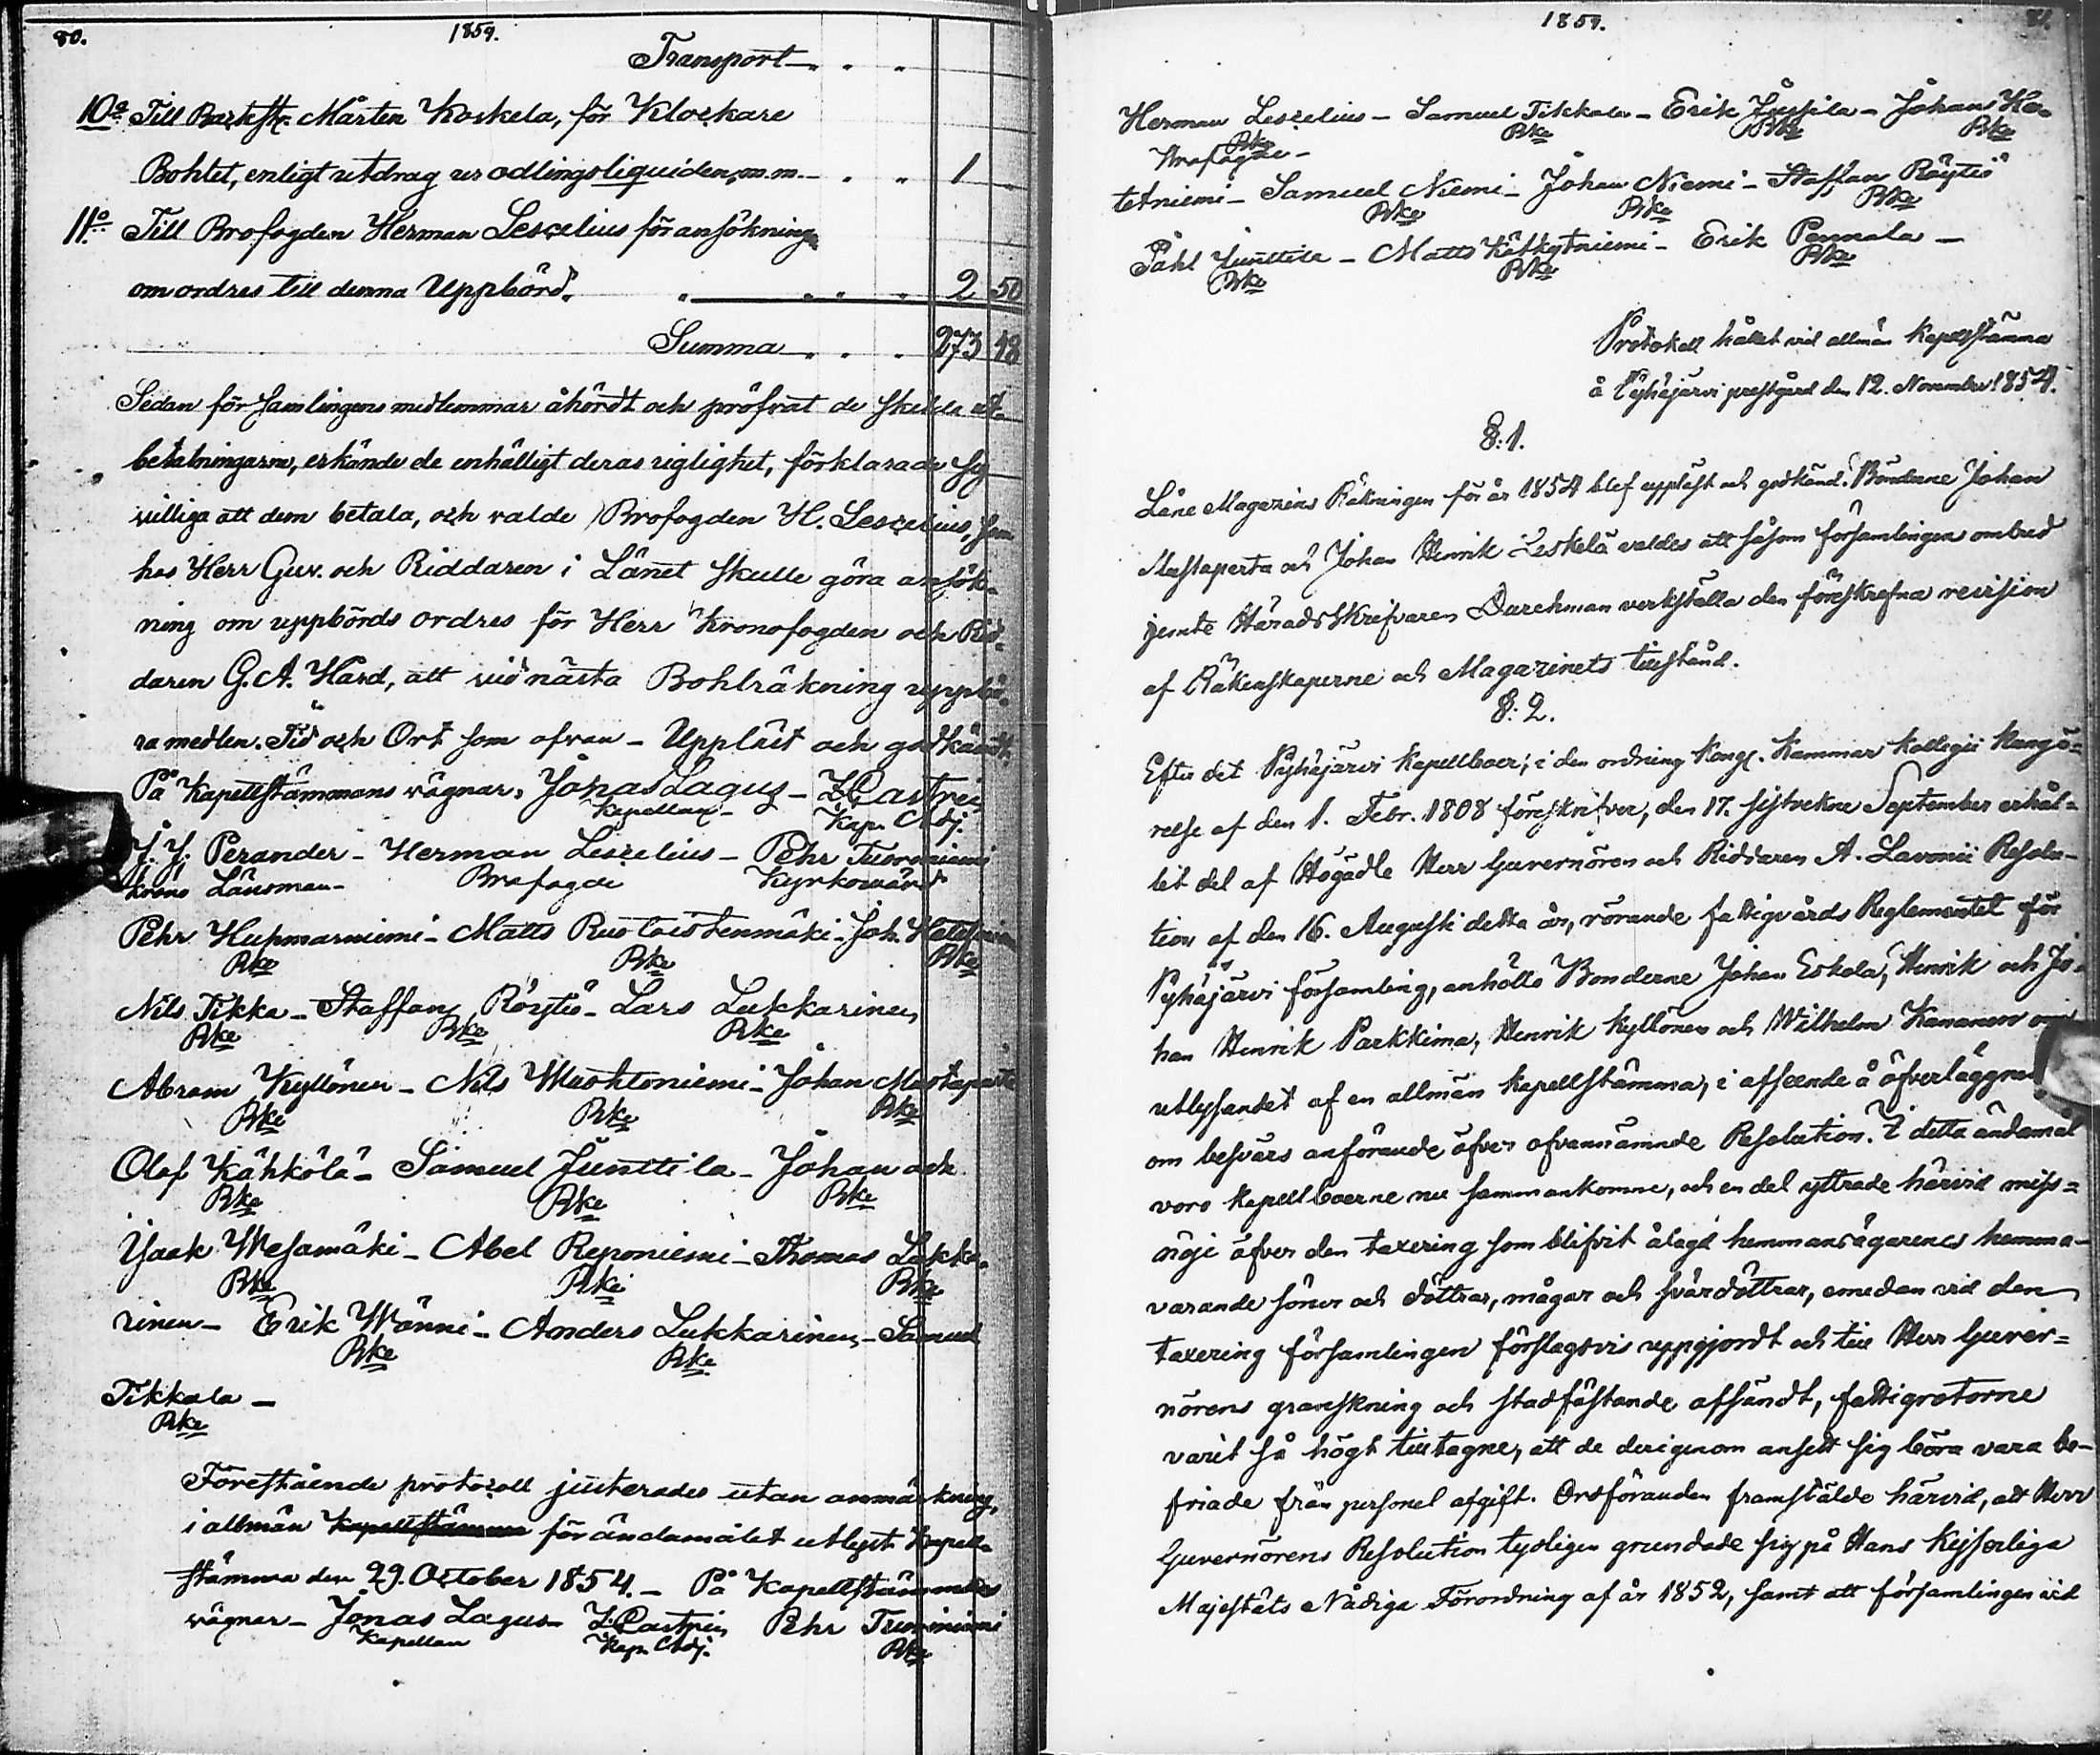 80.
1854.
Transport
10o Till Barkstr. Mårten Koskela, för Klockare
Bohlet, enligt utdrag ur odlingsliquiden, m.m. 1
11o Till Brofogden Herman Lescelius för ansökning
om ordres till denna Uppbörd. 2 50
Summa 273 48
Sedan församlingens medlemmar åhördt och pröfvat de skilda ut-
betalningarne, erkände de enhälligt deras riglighet, förklarade sig
villiga att dem betala, och valde Brofogden H. Lescelius, som
hos Herr Guv. och Riddaren i Länet skulle göra ansök-
ning om uppbörds ordres för Herr Kronofogden och Rid-
daren G. A. Hård, att vid nästa Bohlräkning uppbä-
ra medlen. Tid och Ort som ofvan - Uppläst och godkändt,
På Kapellstämmans vägnar, Jonas Lagus - Z. Castrén
Kapellan - Kap. Adj.
J. J. Perander - Herman Lescelius - Pehr Tuorminiemi
Krono Länsman - Brofogde Kyrkovärd
Pehr Hupmarniemi - Matts Ruotoistenmäki - Joh.
Rke Rke Rke
Nils Tikka - Staffan Röytiö - Lars Lukkarinen
Rke Rke Rke
Abram Kyllönen - Nils Mushtoniemi - Johan Mustaperta
Rke Rke Rke
Olof Kähkölä - Samuel Junttila - Johan och
Rke Rke Rke
Isaak Mesamäki - Abel Reponiemi - Thomas Lukka-
Rke Rke Rke
rinen - Erik Wänni - Anders Lukkarinen - Samuel
Rke Rke
Tikkala -
Rke
Förestående protocoll justerades utan anmärkning,
i allmän Kapellstämma för ändamålet utlyst Kapell-
stämma den 29. October 1854. - På Kapellstämmans
vägnar - Jonas Lagus Z. Castrén Pehr Tuorminiemi
Kapellan Kap. Adj. Rke
1854.
81.
Herman Lescelius - Samuel Tikkala - Erik Jussila - Johans
Brofogde - Rke Rke Rke Rke
tetniemi - Samuel Niemi - Johan Niemi - Staffan Röytiö
Rke Rke Rke
Påhl Junttila - Matts Kätkytniemi - Erik Pennala -
Rke Rke Rke
Protokoll hållet vid allmän Kapellstämma
å Pyhäjärvi prestgård den 12. November 1854.
§: 1.
Låne Magazins Räkningen för år 1854 blef uppläst och godkänd. Bönderne Johan
Mustaperta och Johan Henrik Leskelä valdes att såsom församlingens ombud
jemte Häradsskrifvaren Durchman verkställa den föreskrefna revision
af Räkenskaperne och Magazinets tillstånd.
§: 2.
Efter det Pyhäjärvi Kapellboer, i den ordning Kongl. Kammar Kollegii Kungö-
relse af den 1. Febr. 1808 föreskrifver, den 17. sistvekne September erhål-
lit del af Högädle Herr Guvernören och Riddaren A. Lavonii Resolu-
tion af den 16. Augusti detta år, rörande fattigvårds Reglementet för
Pyhäjärvi församling, anhöllo Bönderne Johan Eskola, Henrik och Jo-
han Henrik Parkkima, Henrik Kyllönen och Wilhelm Kananen om
utlysandet af en allmän Kapellstämma, i afseende å öfverläggning
om besvärs anförande öfver ofvannämnde Resolution. I detta ändamål
voro Kapellboerne nu sammankomne, och en del yttrade härvid miss-
nöje öfver den taxering som blifvit ålagd hemmansägarenes hemma-
varande söner och döttrar, mågar och svärdöttrar, emedan vid den
taxering församlingen förslagsvis uppgjordt och till Herr Guver-
nörens granskning och stadfästande afsändt, fattigrotorne
varit så högt tilltagne, att de derigenom ansett sig böra vara be-
friade från personel afgift. Ordföranden framstälde härvid, att Herr
Guvernörens Resolution tydligen grundade sig på Hans Kejserliga
Majestäts Nådiga Förordning af år 1852, samt att församlingen vid